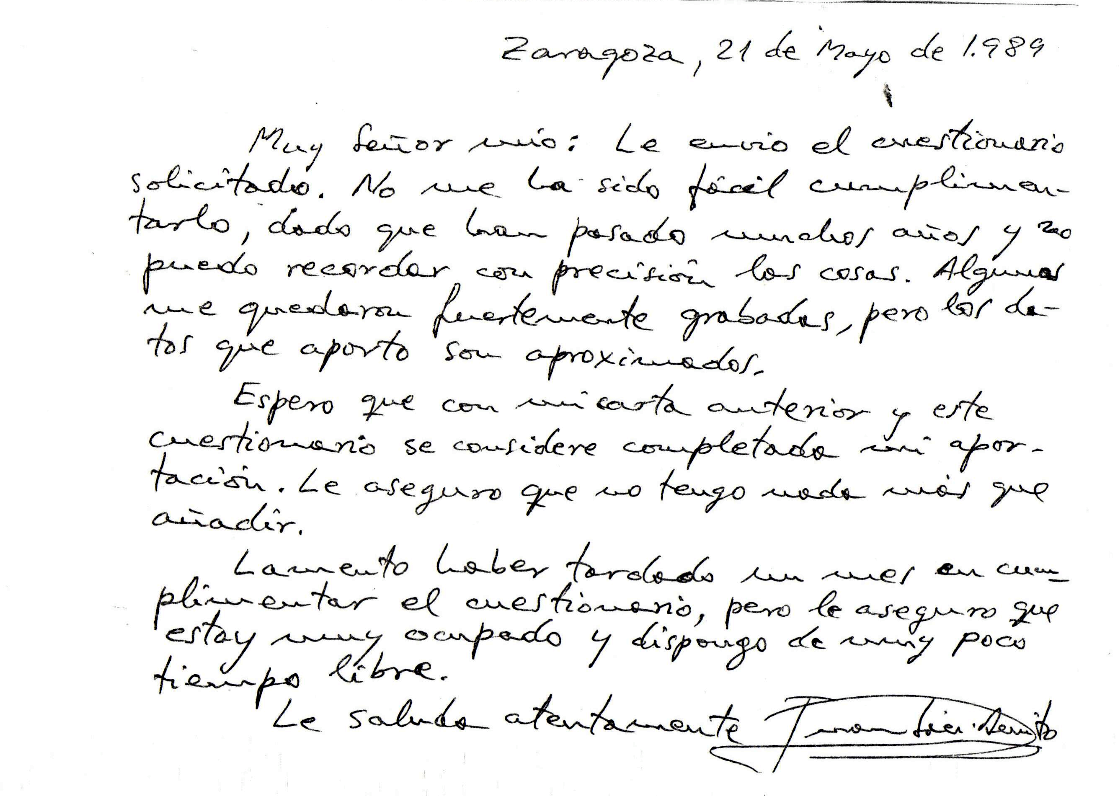 Zaragoza, 21 de Mayo de 1.989
Muy Señor mío: Le envio el cuestionario
solicitado. No me ha sido fácil cumplimen-
tarlo, dado que han pasado muchos años y no
puedo recordar con precisión las cosas. Algunas
me quedaron fuertemente grabadas, pero los da-
tos que aporto son aproximados.
Espero que con mi carta anterior y este
cuestionario se considere completada mi apor-
tación. Le aseguro que no tengo nada más que
añadir.
Lamento haber tardado un mes en cum-
plimentar el cuestionario, pero le aseguro que
estoy muy ocupado y dispongo de muy poco
tiempo libre.
Le saluda atentamente